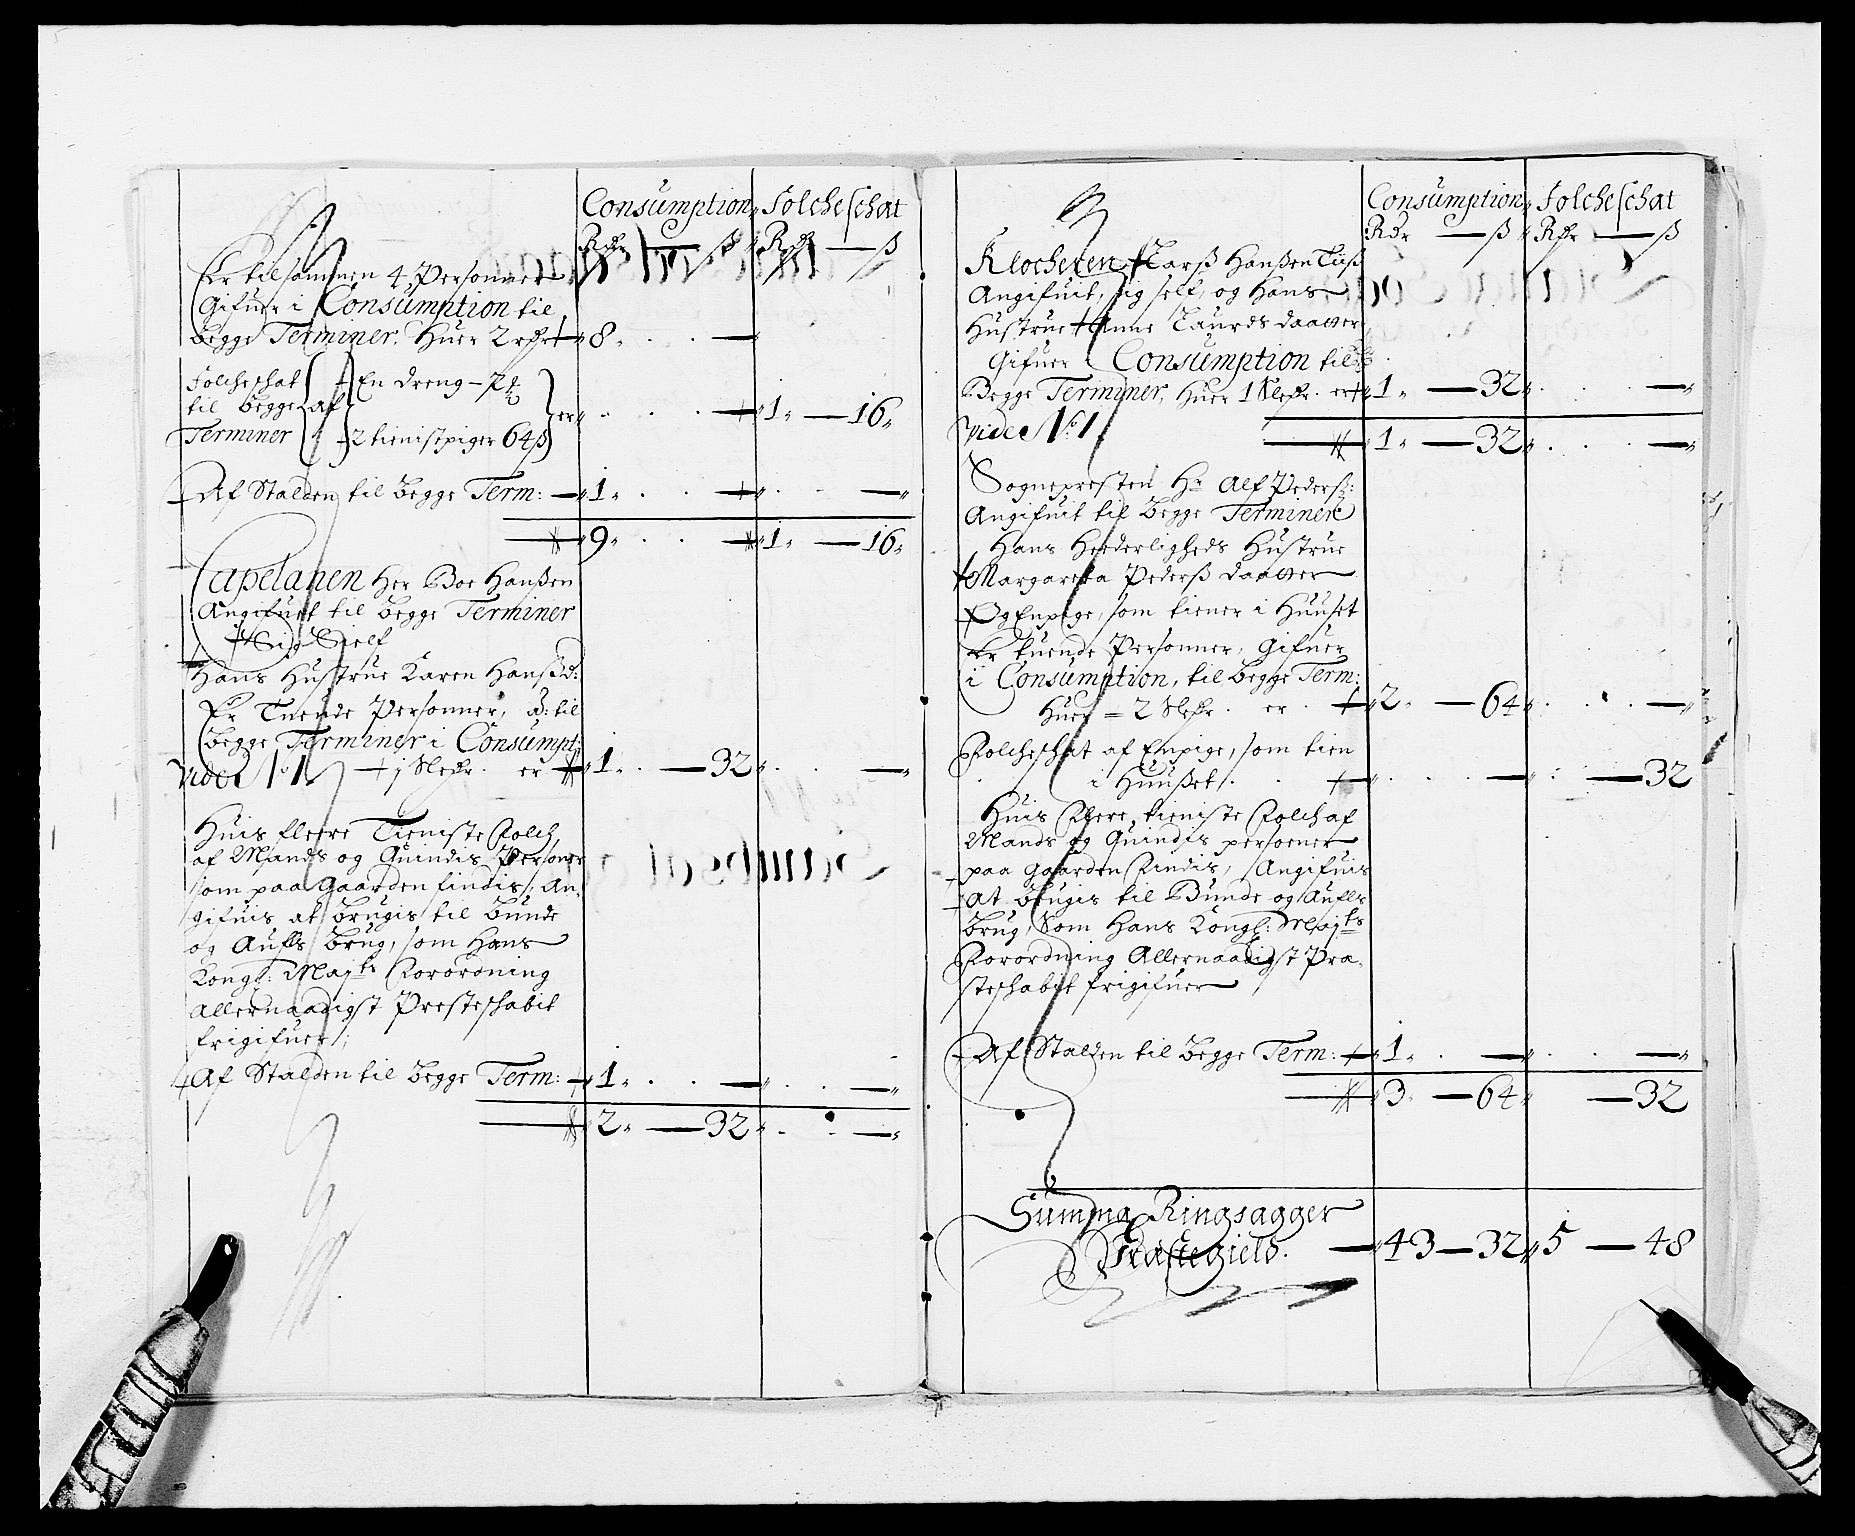 Consumption Folcheschat
Rdr — ß Rdr — ß
Er tilsammen 4 Personner
Gifuer i Consumption til
begge Terminer. Huer 2 rdr 8
Folcheschat En dreng
til begge af er 1 — 16
Terminer 2 tienistpiger 64 ß
Af Stalden til begge Term: 1
9 1 — 16
Capelanen Her Boe Hanßen
Angifuet til begge Terminer
Sig Sielf
Hans Hustrue Karen Hanß d:
Er Tuende Personner, d: til
begge Terminer i Consumpt:
Videt No 1 j Sledr. er 1 — 32
Huis fleere Tieniste Folch
af Mands og Quindis Personer
som paa gaarden findis, An-
gifuis at brugis til bunde
og Aufls brug, som Hans
Kongl: Majts Forordning
Allernaadigst Presteskabit
frigifuer;
Af Stalden til begge Term: 1
2 — 32
Consumption Folcheschat
Rdr — ß Rdr — ß
Klocheren Larß Hanßen
Angifuit, sig self, og Hans
Hustrue Anne Laurds daatter
Gifuer Consumption til
Begge Terminer, huer 1 Sledr. er 1 — 32
Videt No 1 1 — 32
Sognepresten Hr Alf Pederß:
Angifuit til begge Terminer
Hans Hæderligheds Hustrue
Margareta Pederß daatter
Og En pige, som tiener i Huuset
Er tuende Personner, Gifuer
i Consumption, til begge Term:
Huer = 2 Sledr. er 2 — 64
Folcheschat af En pige, som tien
i Huußet 32
Huis Flere tieniste Folch af
Mands og Quindis persoener
paa gaarden Findis, Angifuis
At brugis til Bunde og Aufls
Brug, Som Hans Kongl: Majts
Forordning Allernaadigst Præ-
steskabit frigifuer
Af Stalden til begge Term: 1
3 — 64 — 32
Summa Ringsagger
Præstegield. 43 — 32 5 — 48